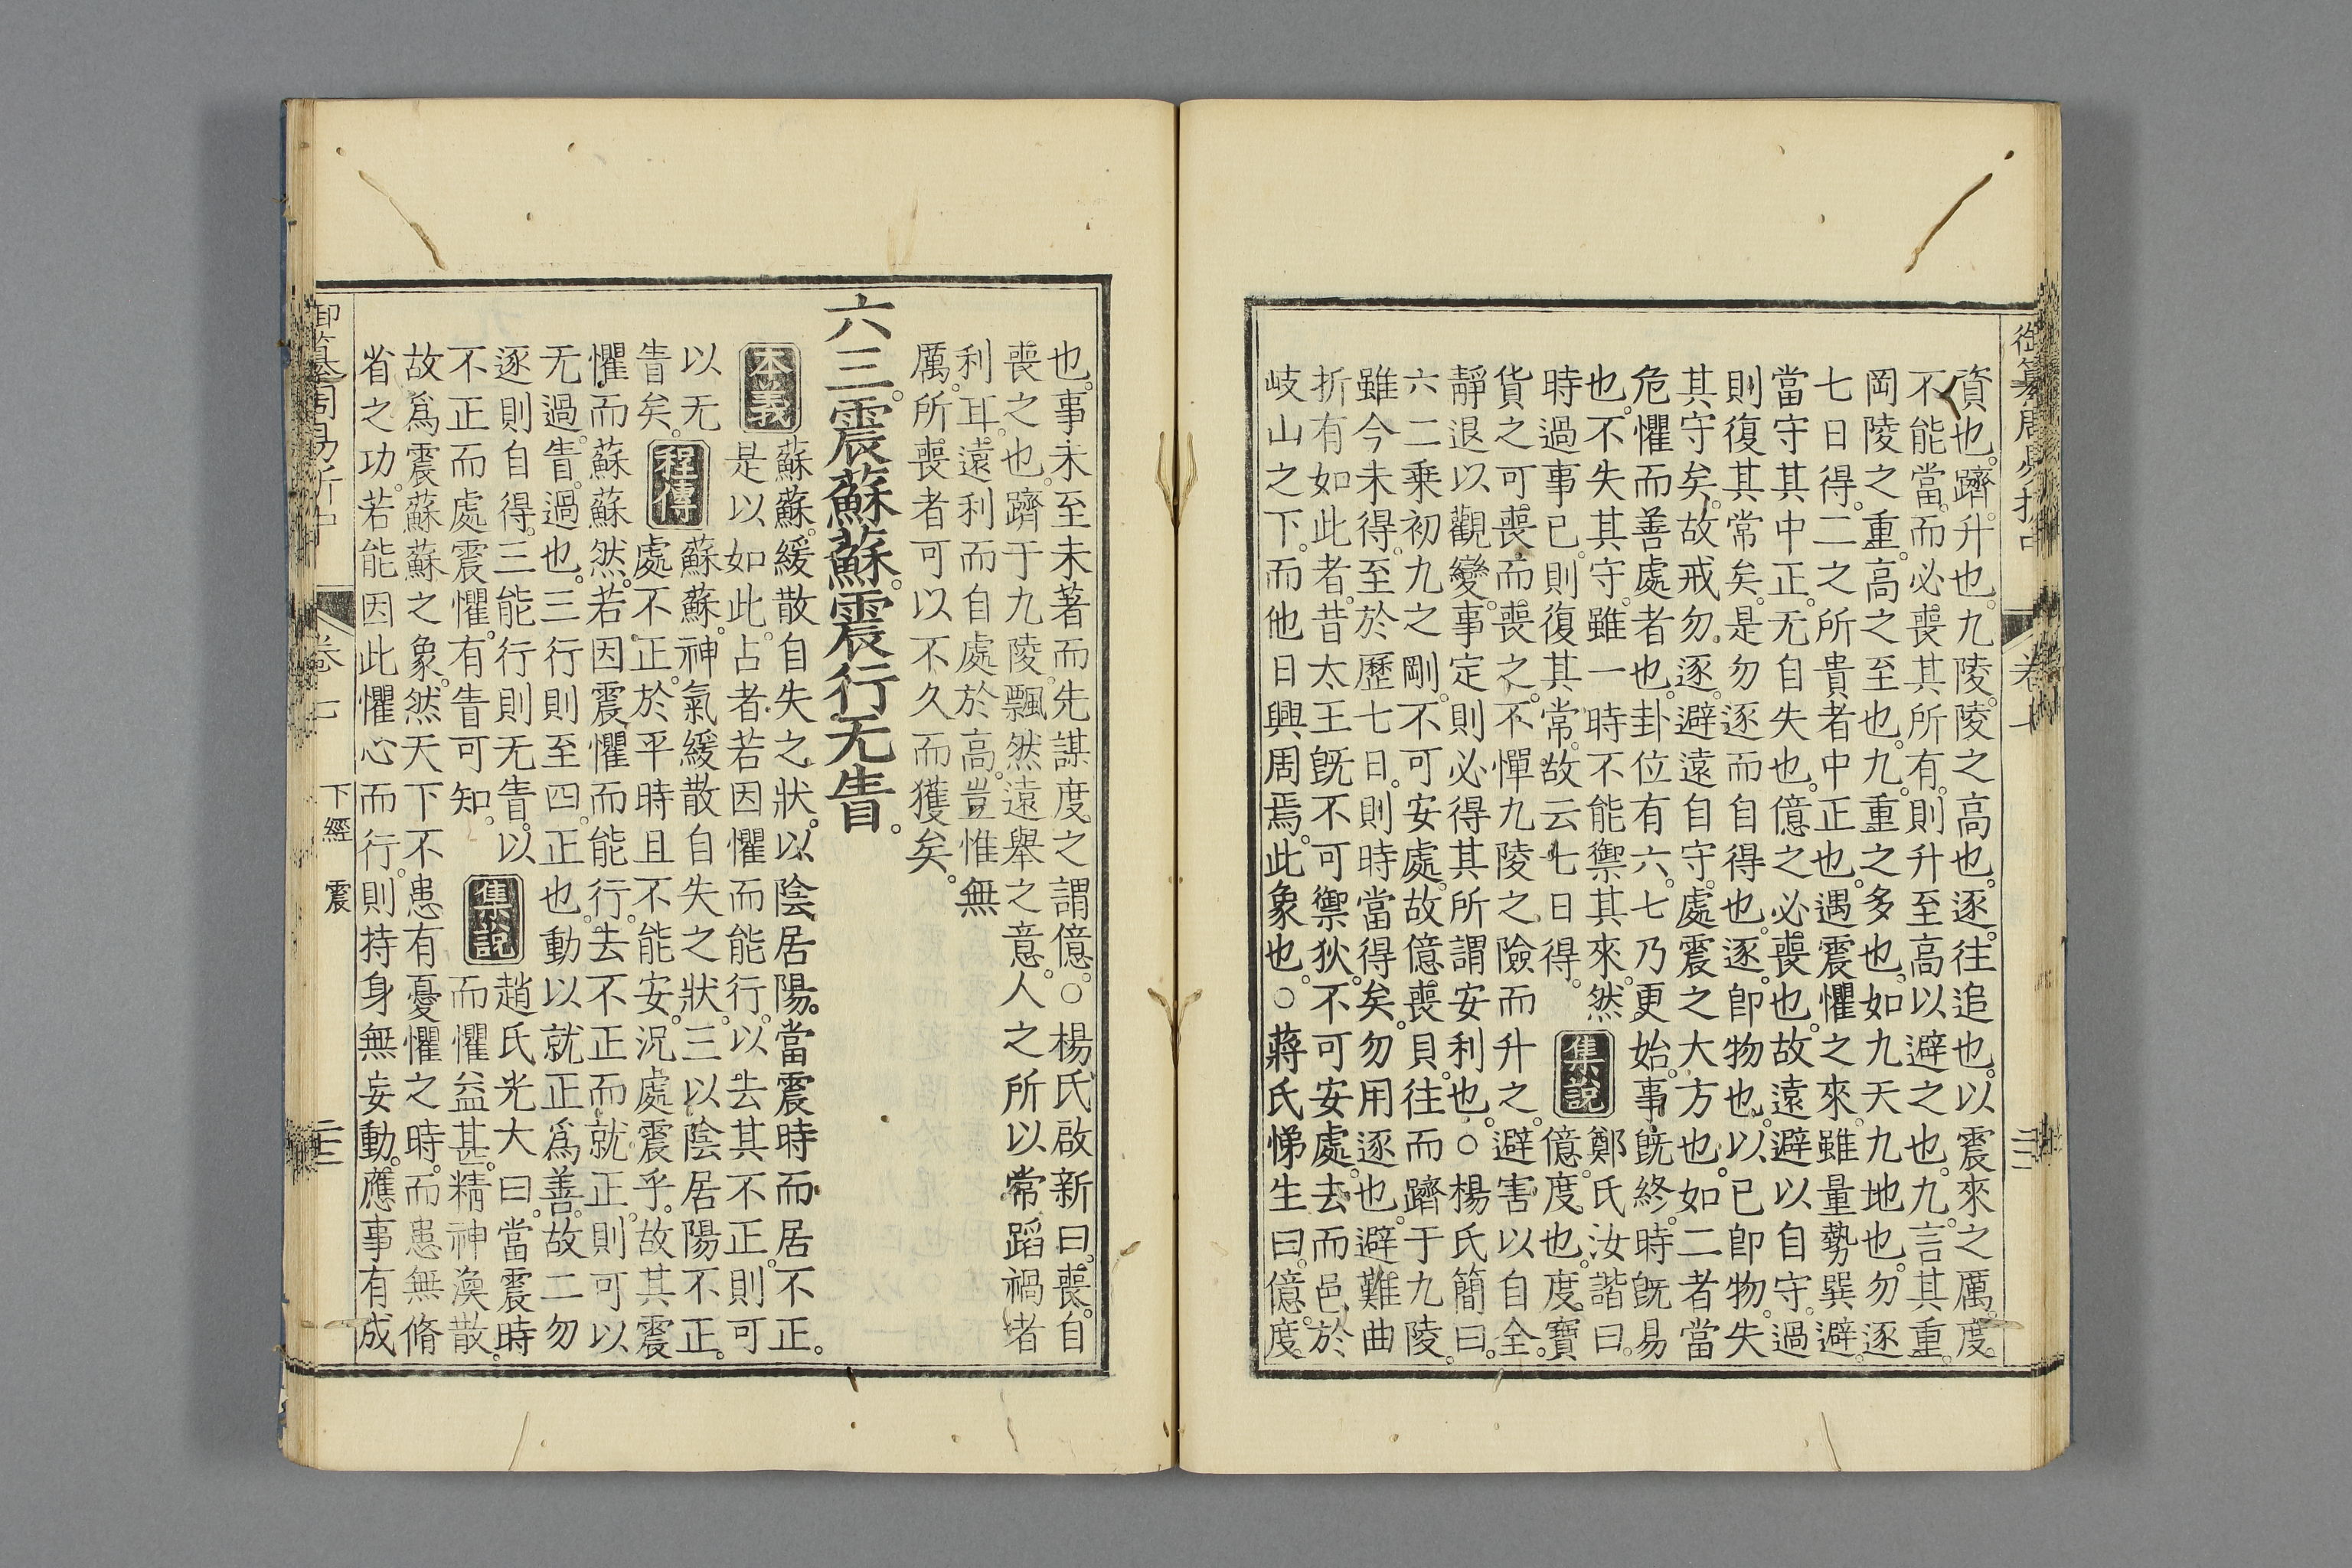 御纂周易折中 卷七
資也。躋。升也。九陵。陵之高也。逐。往追也。以震來之厲。度
不能當。而必喪其所有。則升至高以避之也。九。言其重。
岡陵之重。高之至也。九。重之多也。如九天九地也。勿逐
七日得。二之所貴者中正也。遇震懼之來。雖量勢巽避。
當守其中正。无自失也。億之必喪也。故遠避以自守。過
則復其常矣。是勿逐而自得也。逐。卽物也。以已卽物。失
其守矣。故戒勿逐。避遠自守。處震之大方也。如二者當
危懼而善處者也。卦位有六。七乃更始。事旣終。時旣易
也。不失其守。雖一時不能禦其來。然
時過事已。則復其常。故云七日得。
集說
鄭氏汝諧曰。
億。度也。度。寶
貨之可喪而喪之。不憚九陵之險而升之。避害以自全。
靜退以觀變。事定則必得其所謂安利也。○楊氏簡曰。
六二乘初九之剛。不可安處。故億喪貝。往而躋于九陵。
雖今未得。至於歷七日。則時當得矣。勿用逐也。避難曲
折有如此者。昔太王旣不可禦狄。不可安處。去而邑於
岐山之下。而他日興周焉。此象也。○蔣氏悌生曰。億。度
也。事未至未著而先謀度之謂億。○楊氏啟新曰。喪。自
喪之也。躋于九陵。飄然遠舉之意。人之所以常蹈禍者
利耳。遠利而自處於高。豈惟無
厲。所喪者可以不久而獲矣。
六三。震蘇蘇。震行无眚。
本義
蘇蘇。緩散自失之狀。以陰居陽。當震時而居不正。
是以如此。占者若因懼而能行。以去其不正。則可
以无
眚矣。
程傳
蘇蘇。神氣緩散自失之狀。三以陰居陽不正。
處不正。於平時且不能安。況處震乎。故其震
懼而蘇蘇然。若因震懼而能行。去不正而就正。則可以
无過眚。過也。三行則至四。正也。動以就正爲善。故二勿
逐則自得。三能行則无眚。以
不正而處震懼。有眚可知。
集說
趙氏光大曰。當震時
而懼益甚。精神渙散。
故爲震蘇蘇之象。然天下不患有憂懼之時。而患無脩
省之功。若能因此懼心而行。則持身無妄動。應事有成
御纂周易折中 卷七 下經 震 三三